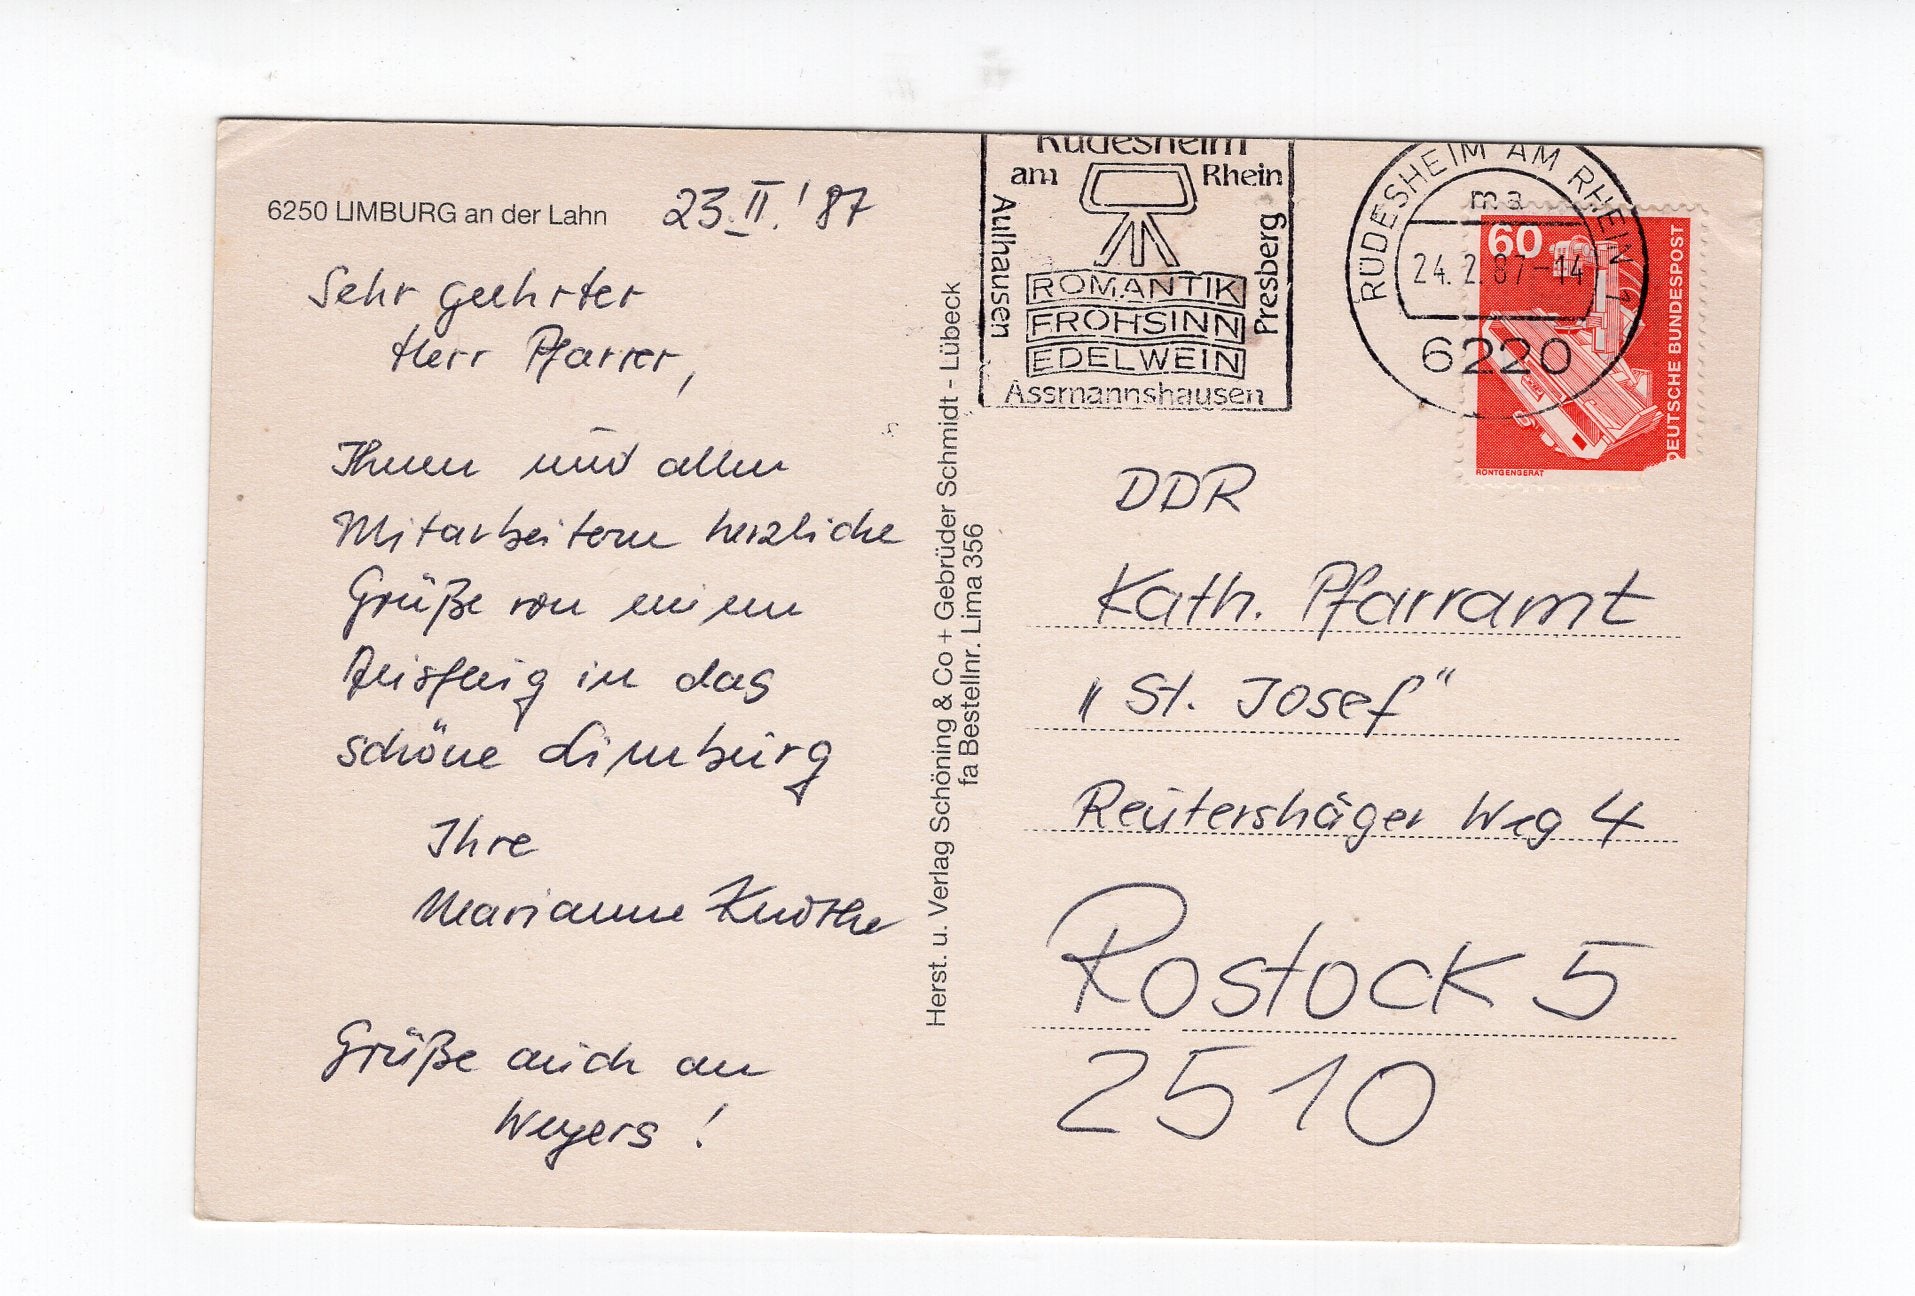 6250 LIMBURG an der Lahn
23.II.'87
Sehr geehrter
Herr Pfarrer,
Ihnen und allen
Mitarbeitern herzliche
Grüße von einem
Ausflug in das
schöne Limburg
Ihre
Marianne Knothe
Grüße auch an
Weyers!
Herst. u. Verlag Schöning & Co + Gebrüder Schmidt - Lübeck
fa Bestellnr. Lima 356
Rüdesheim
am Rhein
Aulhausen
Presberg
ROMANTIK
FROHSINN
EDELWEIN
Assmannshausen
RÜDESHEIM AM RHEIN 1
ma
24.2.87-14
6220
60
DEUTSCHE BUNDESPOST
RÖNTGENGERÄT
DDR
Kath. Pfarramt
"St. Josef"
Reutershäger Weg 4
Rostock 5
2510